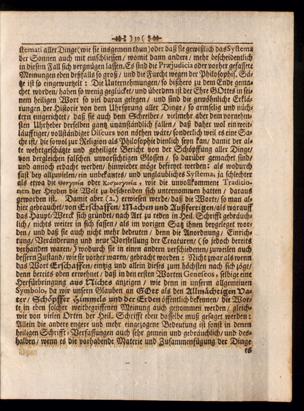 ❧ ) 10 ( ❧
stemati aller Dinge (wie sie insgemein thun) oder daß sie gewißlich das Systema
der Sonnen auch mit einschliessen, womit dann andere, mehr bescheidentlich
in diesem Fall sich vergnügen lassen. Es sind die Præjudicia oder vorher gefassete
Meinungen eben deßfalls so groß, und die Furcht wegen der Philosophis. Sä-
tze ist so eingewurzelt: Die Unternehmungen, so bißhero zu dem Ende gema-
chet worden, haben so wenig geglücket, und überdem ist der Ehre GOttes in sei-
nem heiligen Wort so viel daran gelegen, und sind die gewöhnliche Erklä-
rungen der Historie von dem Uhrsprung aller Dinge, so
eingerichtet, daß sie auch dem Schreiber, vielmehr aber dem vornehm-
sten Uhrheber derselben gantz unanständlich fallen, daß daher wol ein weit-
läuftiger, vollständiger Discurs von nöhten wäre, sonderlich weil es eine Sa-
che ist, die sowol zur Religion als Philosophie dienlich seyn kan, damit der al-
te wehrtgeschätzte und geheiligte Bericht von der Schöpffung aller Dinge,
von dergleichen falschen, unvorsichtigen Glossen, so darüber gemachet sind,
und annoch erdacht werden, hinwieder möge befreyet werden: als wodurch
fast bey allzuvielen, ein unbekantes, und unglaubliches Systema, ja schlechter
als etwa die oder, wie die unvollkommene Traditio-
nen der Heyden die Welt zu beschreiben sich unternommen hatten, daraus
geworden ist. Damit aber (2.) erwiesen werde, daß die Worte, so man al-
hie gebrauchet, von Erschaffen, Machen und Ausfertigen, als worauf
das Haupt-Werck sich gründet, nach Art zu reden in Heil. Schrifft gebräuch-
lich, nichts weiter in sich fassen, als im vorigen Satz ihnen beygeleget wor-
den, und daß sie auch nicht mehr bedeuten, denn die Anordnung, Einrich-
tung, Veränderung und neue Vorstellung der Creaturen, (so jedoch bereits
verhanden waren,) wodurch sie in einen andern verschiedenen, zuweilen auch
bessern Zustand, wie sie vorher waren, gebracht worden: Nicht zwar als wenn
das Wort Erschaffen, eintzig und allein dieses zum höchsten nach sich zöge,
denn bereits oben erwehnet, daß in den ersten Worten Geneseos, selbiges eine
Herfürbringung aus Nichts anzeigen, wie denn in unserm allgemeinen
Symbolo, da wir unsern Glauben an GOtt als den Allmächtigen Va-
ter, Schöpffer Himmels und der Erden öffentlich bekennen, die Wor-
te in eben solcher weitbegriffenen Meinung auch genommen werden, gleich-
wie von vielen Orten der Heil. Schrifft eben dasselbe muß gesaget werden:
Allein die andere enger und mehr eingezogene Bedeutung ist sonst in denen
heiligen Schrifft-Verfassungen auch sehr gemein und gebräuchlich, und des-
halben, wenn es die vorhabende Materie und Zusammenfügung der Dinge